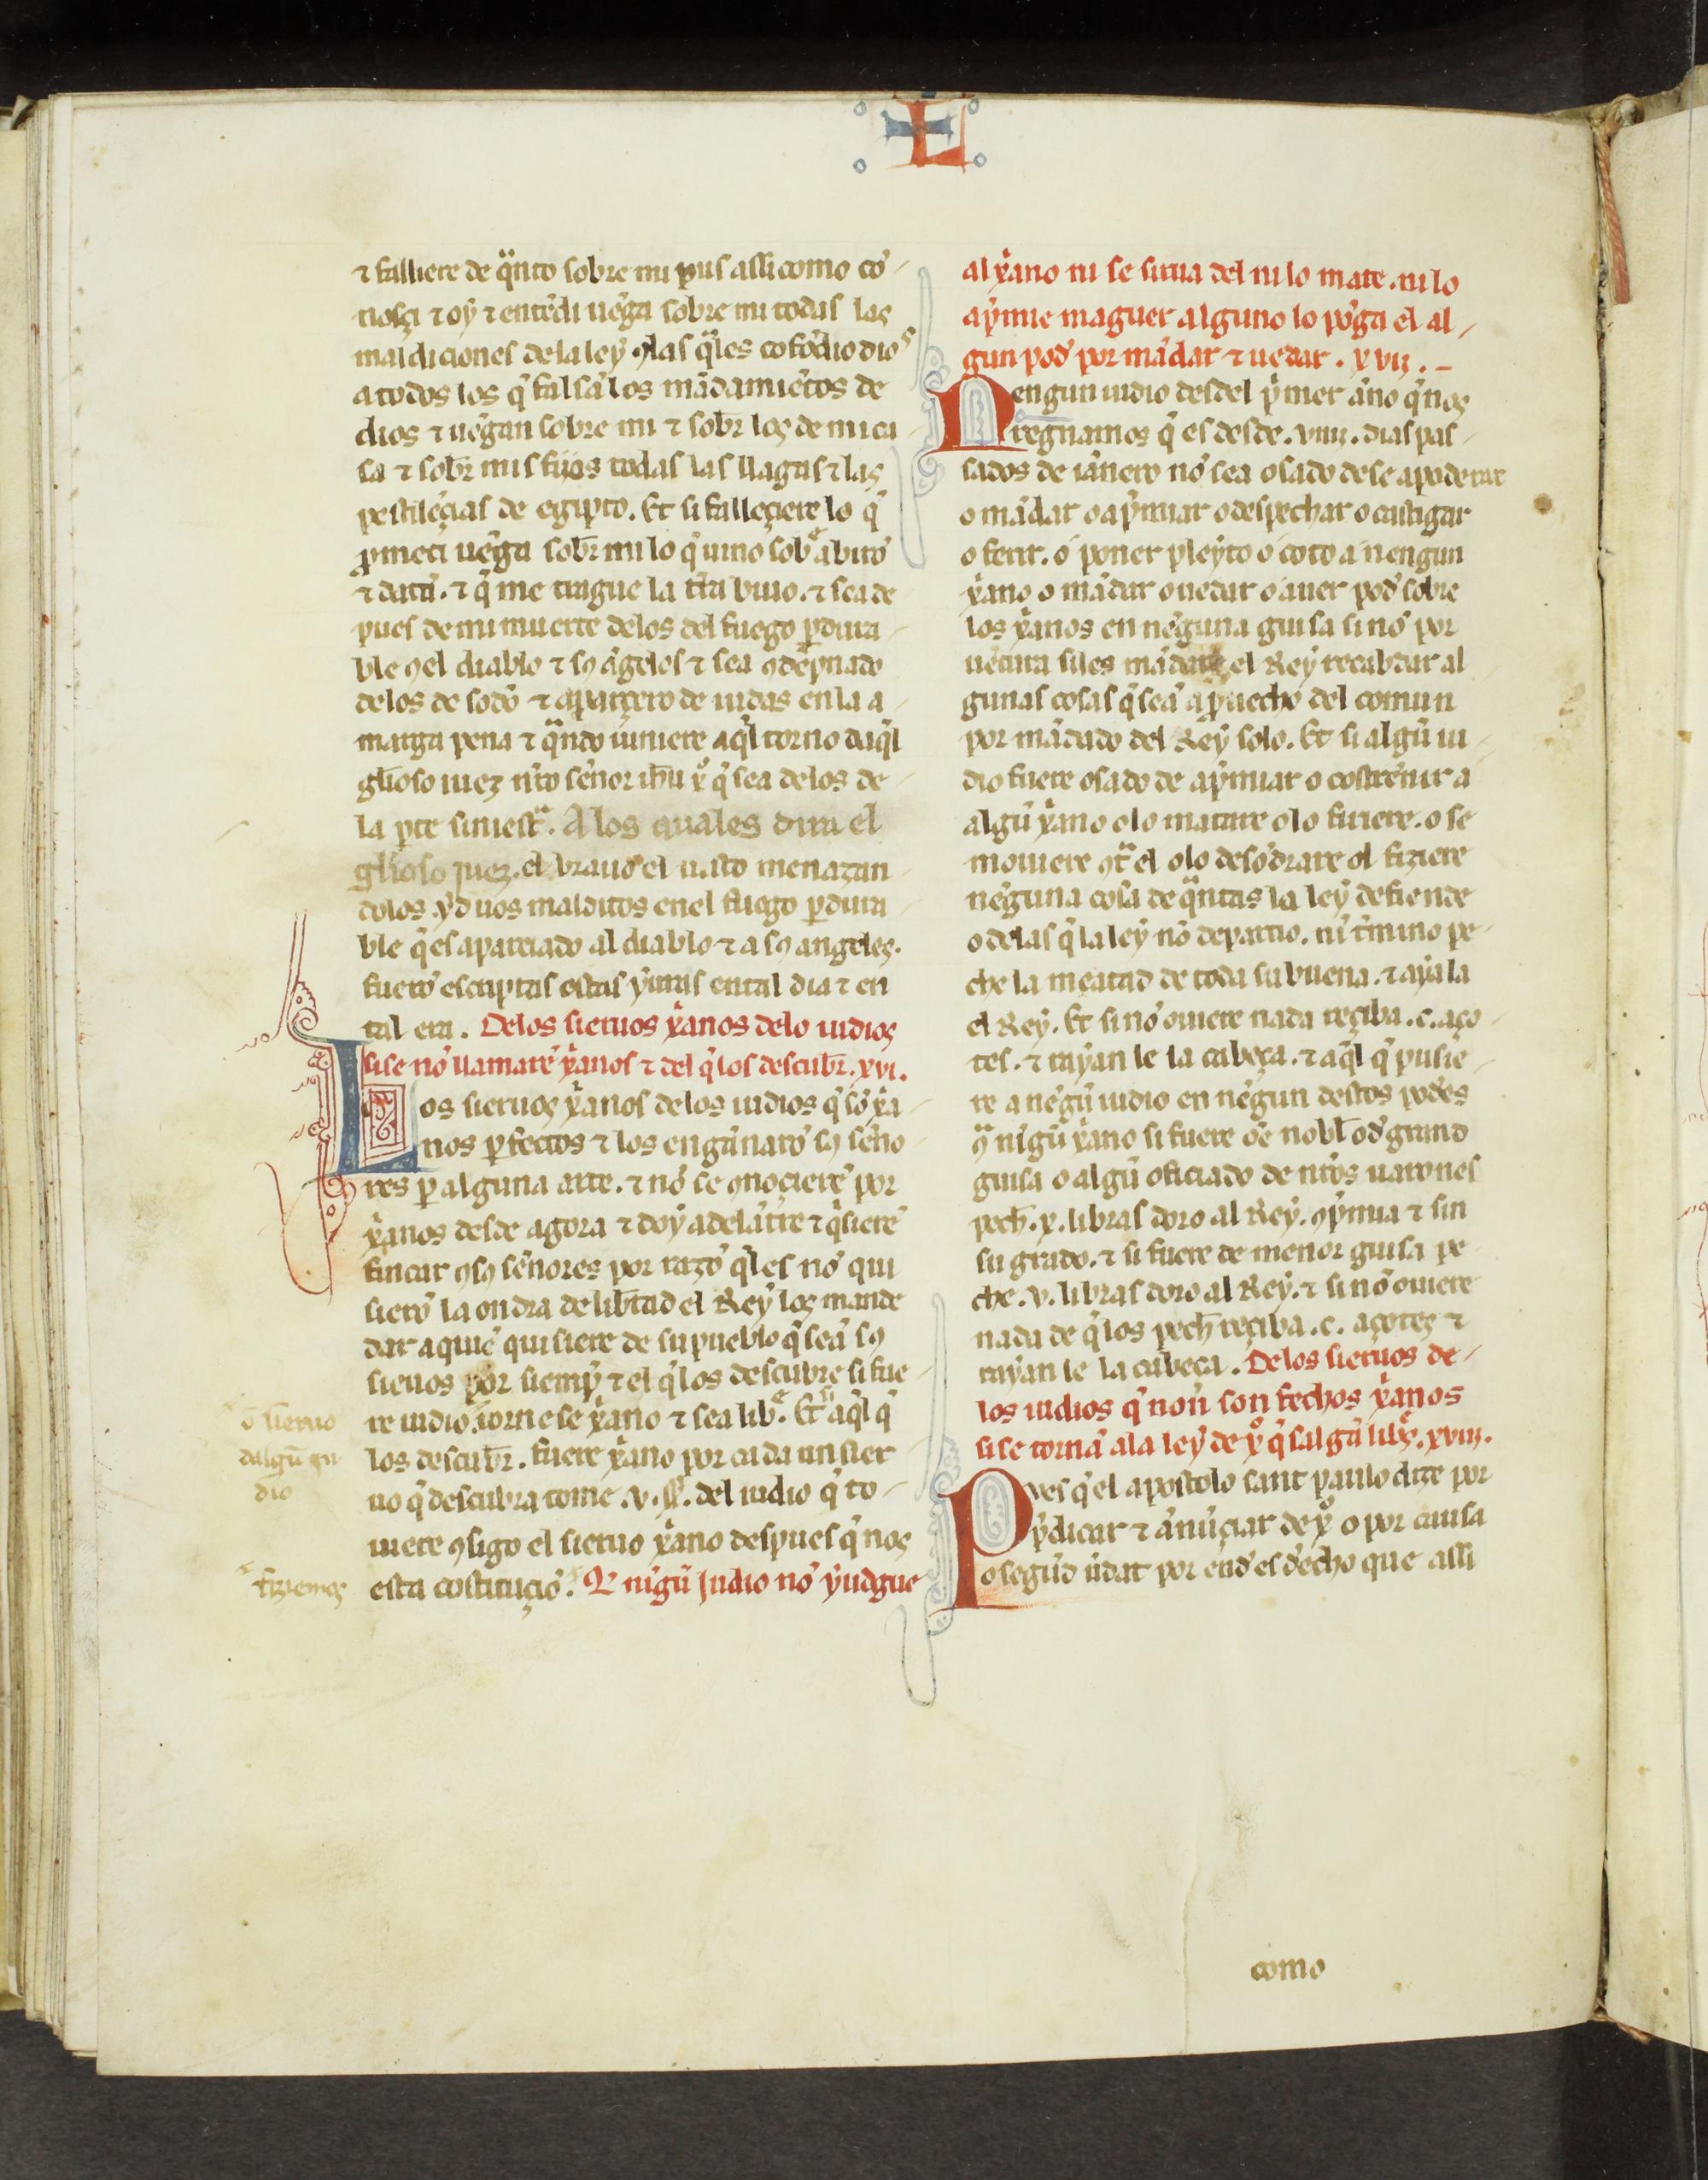 L
⁊ falliere de q̈nto sobre mi pus assi como co᷑
nosçi ⁊ oy ⁊ ente᷑di ue᷑ga sobre mi todas las
maldiciones dela ley ꝯlas q̈les cofo᷑dio dios
a todos los q̃ falsa᷑ los ma᷑damie᷑tos de
dios ⁊ ue᷑gan sobre mi ⁊ sobr̃ los de mi ca
sa ⁊ sobr̃ mis fijos todas las llagas ⁊ las
pestile᷑çias de egipto. Et si falleçiere lo q̃
ꝓmeti ue᷑ga sobr̃ mi lo q̃ uino sobr̃ abiro᷑
⁊ data᷑. ⁊ q̃ me trague la tr̃ra biuo. ⁊ sea de
pues de mi muerte delos del fuego ꝑdura
ble ꝯel diablo ⁊ sꝯ a᷑geles ⁊ sea ꝯde᷑pnado
delos de sodo᷑ ⁊ aparçero de iudas en la a
marga pena ⁊ q̈ndo uiniere aq̃l torno daq̃l
gl̃ioso iuez nr̃o se᷑nor ih̃u x̃o q̃ sea delos de
la ꝑte siniestr̃a. A los quales dira el
gl̃ioso juez. el brauo el iusto menazan
dolos. yd uos malditos enel fuego ꝑdura
ble q̃ es apareiado al diablo ⁊ a sꝯ angeles.
fuero᷑ escriptas estas yuras en tal dia ⁊ en
tal era. Delos sieruos x̃anos delo iudios
si se no᷑ llamare᷑ x̃anos ⁊ del q̃ los descubr̃. xvi.
Los sieruos x̃anos delos iudios q̃ so᷑ x̃a
nos ꝑfectos ⁊ los enga᷑naro᷑ sꝯ se᷑no
res ꝑ alguna arte. ⁊ no᷑ se ꝯnoçiere᷑ por
x̃anos desde agora ⁊ doy adela᷑tre ⁊ q̃siere᷑
fincar ꝯ sꝯ se᷑nores por razo᷑ q̃ les no᷑ qui
siero᷑ la ondra de libr̃tad el Rey los mande
dar a quie᷑ quisiere de su pueblo q̃ sea᷑ sꝯ
sieuos por siemp̃ ⁊ el q̃ los descubre si fue
re iudio. tornese x̃ano ⁊ sea libr̃e. Et si aq̃l q̃
los descubr̃. fuere x̃ano por cada un sier
uo q̃ descubra tome .v. ss̃. del iudio q̃ to
uiere ꝯsigo el sieruo x̃ano despues q̃ nos
esta costituçio᷑. Q̃ ni᷑gu᷑ judio no᷑ yudgue
o᷑ sieruo
dalgu᷑ iu
dio
fiziemos
al x̃ano ni se sirua del ni lo mate. ni lo
ap̃mie maguer alguno lo po᷑ga el al
gun pod̃ por ma᷑dar ⁊ uedar. xvii.
Nengun iudio desdel p̃mer a᷑no q̃ nos
regnamos q̃ es desde .viiii. dias pas
sados de ia᷑nero no᷑ sea osado de se apoderar
o ma᷑dar o ap̃miar o despechar o castigar
o ferir. o poner pleyto o coto a nengun
x̃ano o ma᷑dar o uedar o auer pod̃ sobre
los x̃anos en ne᷑guna guisa si no᷑ por
ue᷑tura si les ma᷑dare el Rey recabdar al
gunas cosas q̃ sea᷑ a ꝓuecho del comun
por ma᷑dado del Rey solo. Et si algu᷑ iu
dio fuere osado de ap̃miar o costre᷑nir a
algu᷑ x̃ano o lo matare o lo firiere. o se
mouiere ꝯtr̃a el o lo deso᷑drare ol fiziere
ne᷑guna cosa de q̈ntas la ley defiende
o delas q̃ la ley no᷑ departio. ni t̃mino pe
che la meatad de toda su buena. ⁊ aya la
el Rey. Et si no᷑ ouiere nada reçiba .c. aço
tes. ⁊ rayan le la cabeça. ⁊ aq̃l q̃ pusie
re a ne᷑gu᷑ iudio en ne᷑gun destos pod̃es
ꝯ̈ ni᷑gu᷑ x̃ano si fuere om̃e nobl̃ o d̃ grand
guisa o algu᷑ oficiado de nr̃os uarones
pech̃ .x. libras doro al Rey. ꝯp̃mia ⁊ sin
su grado. ⁊ si fuere de menor guisa pe
che .v. libras doro al Rey. ⁊ si no᷑ ouiere
nada de q̃ los pech̃ reçiba .c. açotes ⁊
rayan le la cabeça. Delos sieruos de
los iudios q̃ non son fechos x̃anos
si se torna᷑ ala ley de x̃o q̃ salga᷑ libr̃s. xviii.
Pves q̃ el apostolo sant paulo dize por
p̃dicar ⁊ a᷑nu᷑çiar de x̃o o por causa
o segu᷑d ũdat por end̃ es d̃echo que assi
como